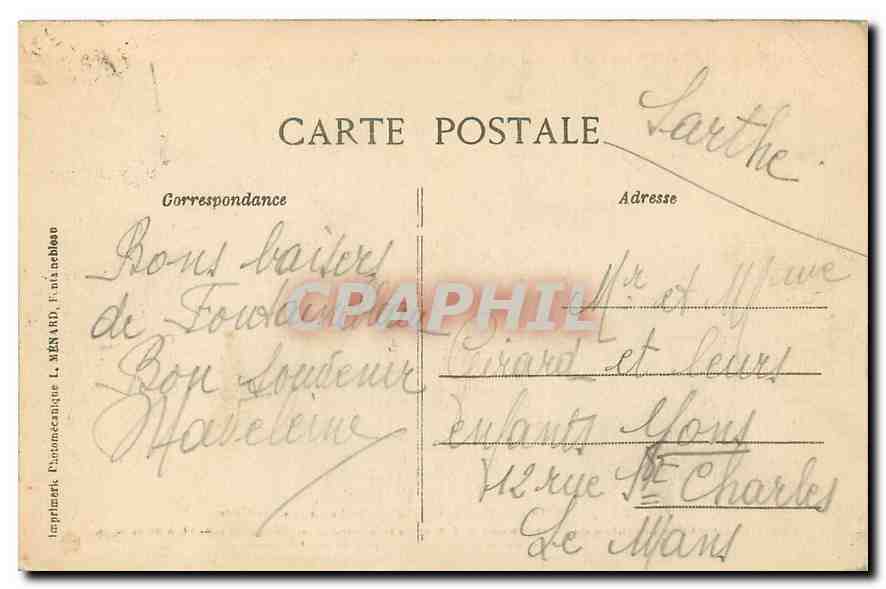 CARTE POSTALE
Sarthe
Correspondance
Adresse
Bons baisers
de Fontainebleau
Bon souvenir
Madeleine
Mr et Mme
Girard et leurs
enfants
12 rue Ste Charles
Le Mans
Imprimerie Photomécanique L. MÉNARD, Fontainebleau
CPAPHIL